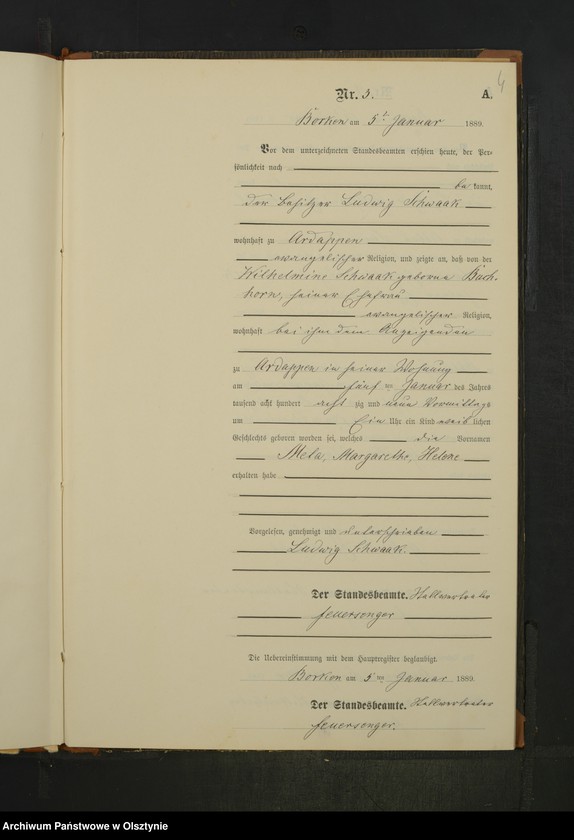 4
Nr. 3. A.
Borken am 5t Januar 1889.
Vor dem unterzeichneten Standesbeamten erschien heute, der Per-
sönlichkeit nach
be kannt,
der Besitzer Ludwig Schwaak
wohnhaft zu Ardappen
evangelischer Religion, und zeigte an, daß von der
Wilhelmine Schwaak geborne Buch-
horn, seiner Ehefrau
evangelischer Religion,
wohnhaft bei ihm dem Anzeigenden
zu Ardappen in seiner Wohnung
am fünf ten Januar des Jahres
tausend acht hundert acht zig und neun Vormittags
um Ein Uhr ein Kind weib lichen
Geschlechts geboren worden sei, welches die Vornamen
Meta, Margarethe, Helene
erhalten habe
Vorgelesen, genehmigt und unterschrieben
Ludwig Schwaak.
Der Standesbeamte. Stellvertreter
Feuersenger
Die Uebereinstimmung mit dem Hauptregister beglaubigt.
Borken am 5 ten Januar 1889.
Der Standesbeamte. Stellvertreter
Feuersenger.
Archiwum Państwowe w Olsztynie